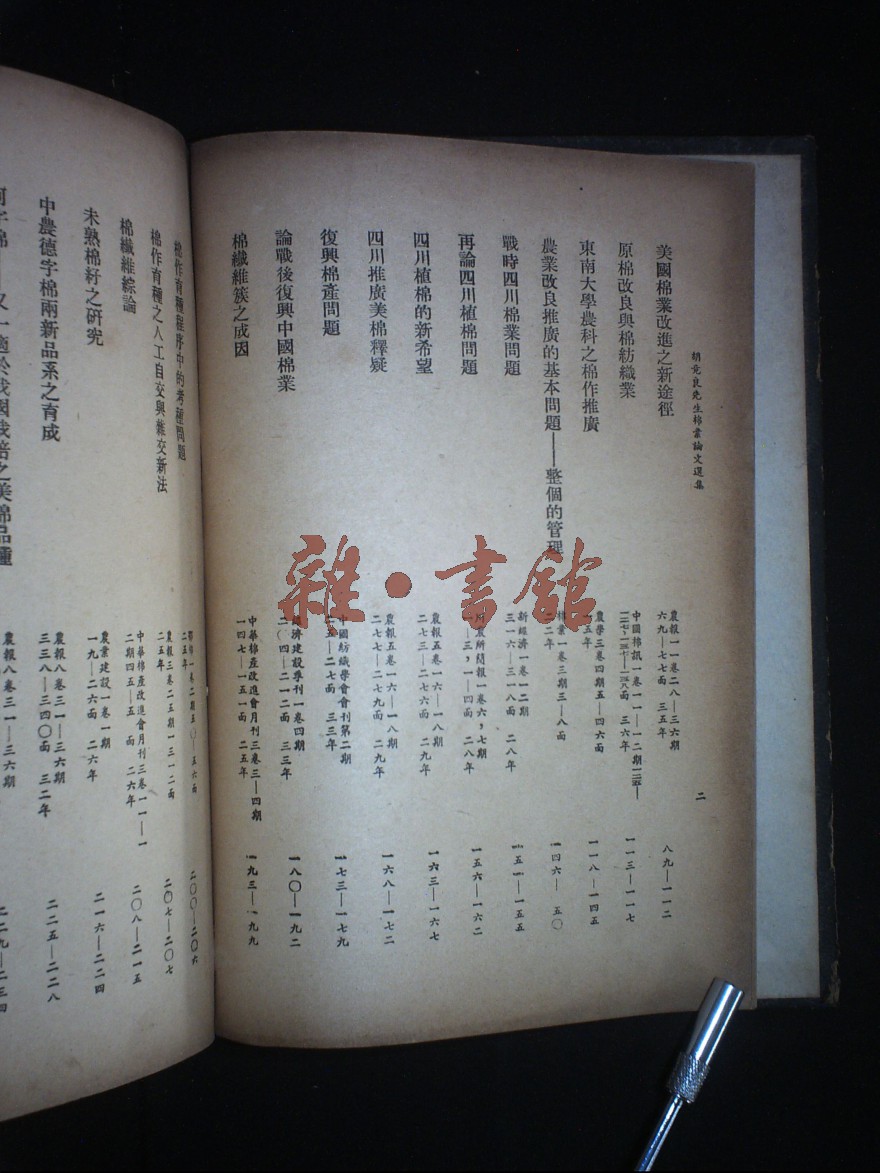 胡竟良先生棉業論文選集
二
美國棉業改進之新途徑
農報一一卷二八—三六期
六九—七七面 三五年
八九—一一二
原棉改良與棉紡織業
三六年
一一三—一一七
東南大學農科之棉作推廣
農學三卷四期五—四六面
一一八—一四五
農業改良推廣的基本問題——整個的管理
棉業一卷三期三—八面
戰時四川棉業問題
新經濟一卷一二期
三一六—三一八面 二八年
一五一—一五五
再論四川植棉問題
一五六—一六二
四川植棉的新希望
農報五卷一六—一八期
二七三—二七六面 二九年
一六三—一六七
四川推廣美棉釋疑
農報五卷一六—一八期
二七七—二七九面 二九年
一六八—一七二
復興棉產問題
中國紡織學會會刊第二期
二五—二七面 三三年
一七三—一七九
論戰後復興中國棉業
經濟建設季刊一卷四期
二〇四—二一二面 三三年
一八〇—一九二
棉纖維簇之成因
中華棉產改進會月刊三卷三—四期
一四七—一五一面 二五年
一九三—一九九
棉作育種程序中的考種問題
二〇〇—二〇六
棉作育種之人工自交與雜交新法
農報三卷二五期一三一二面
二五年
二〇七—二〇七
棉纖維綜論
中華棉產改進會月刊三卷一一—一
二期四五—五五面 二六年
二〇八—二一五
未熟棉籽之研究
農業建設一卷一期
一九—二六面 二六年
二一六—二二四
中農德字棉兩新品系之育成
農報八卷三一—三六期
三三八—三四〇面 三二年
二二五—二二八
字棉——又一適於我國栽培之美棉品種
農報八卷三一—三六期
二二九—二三四
雜·書館